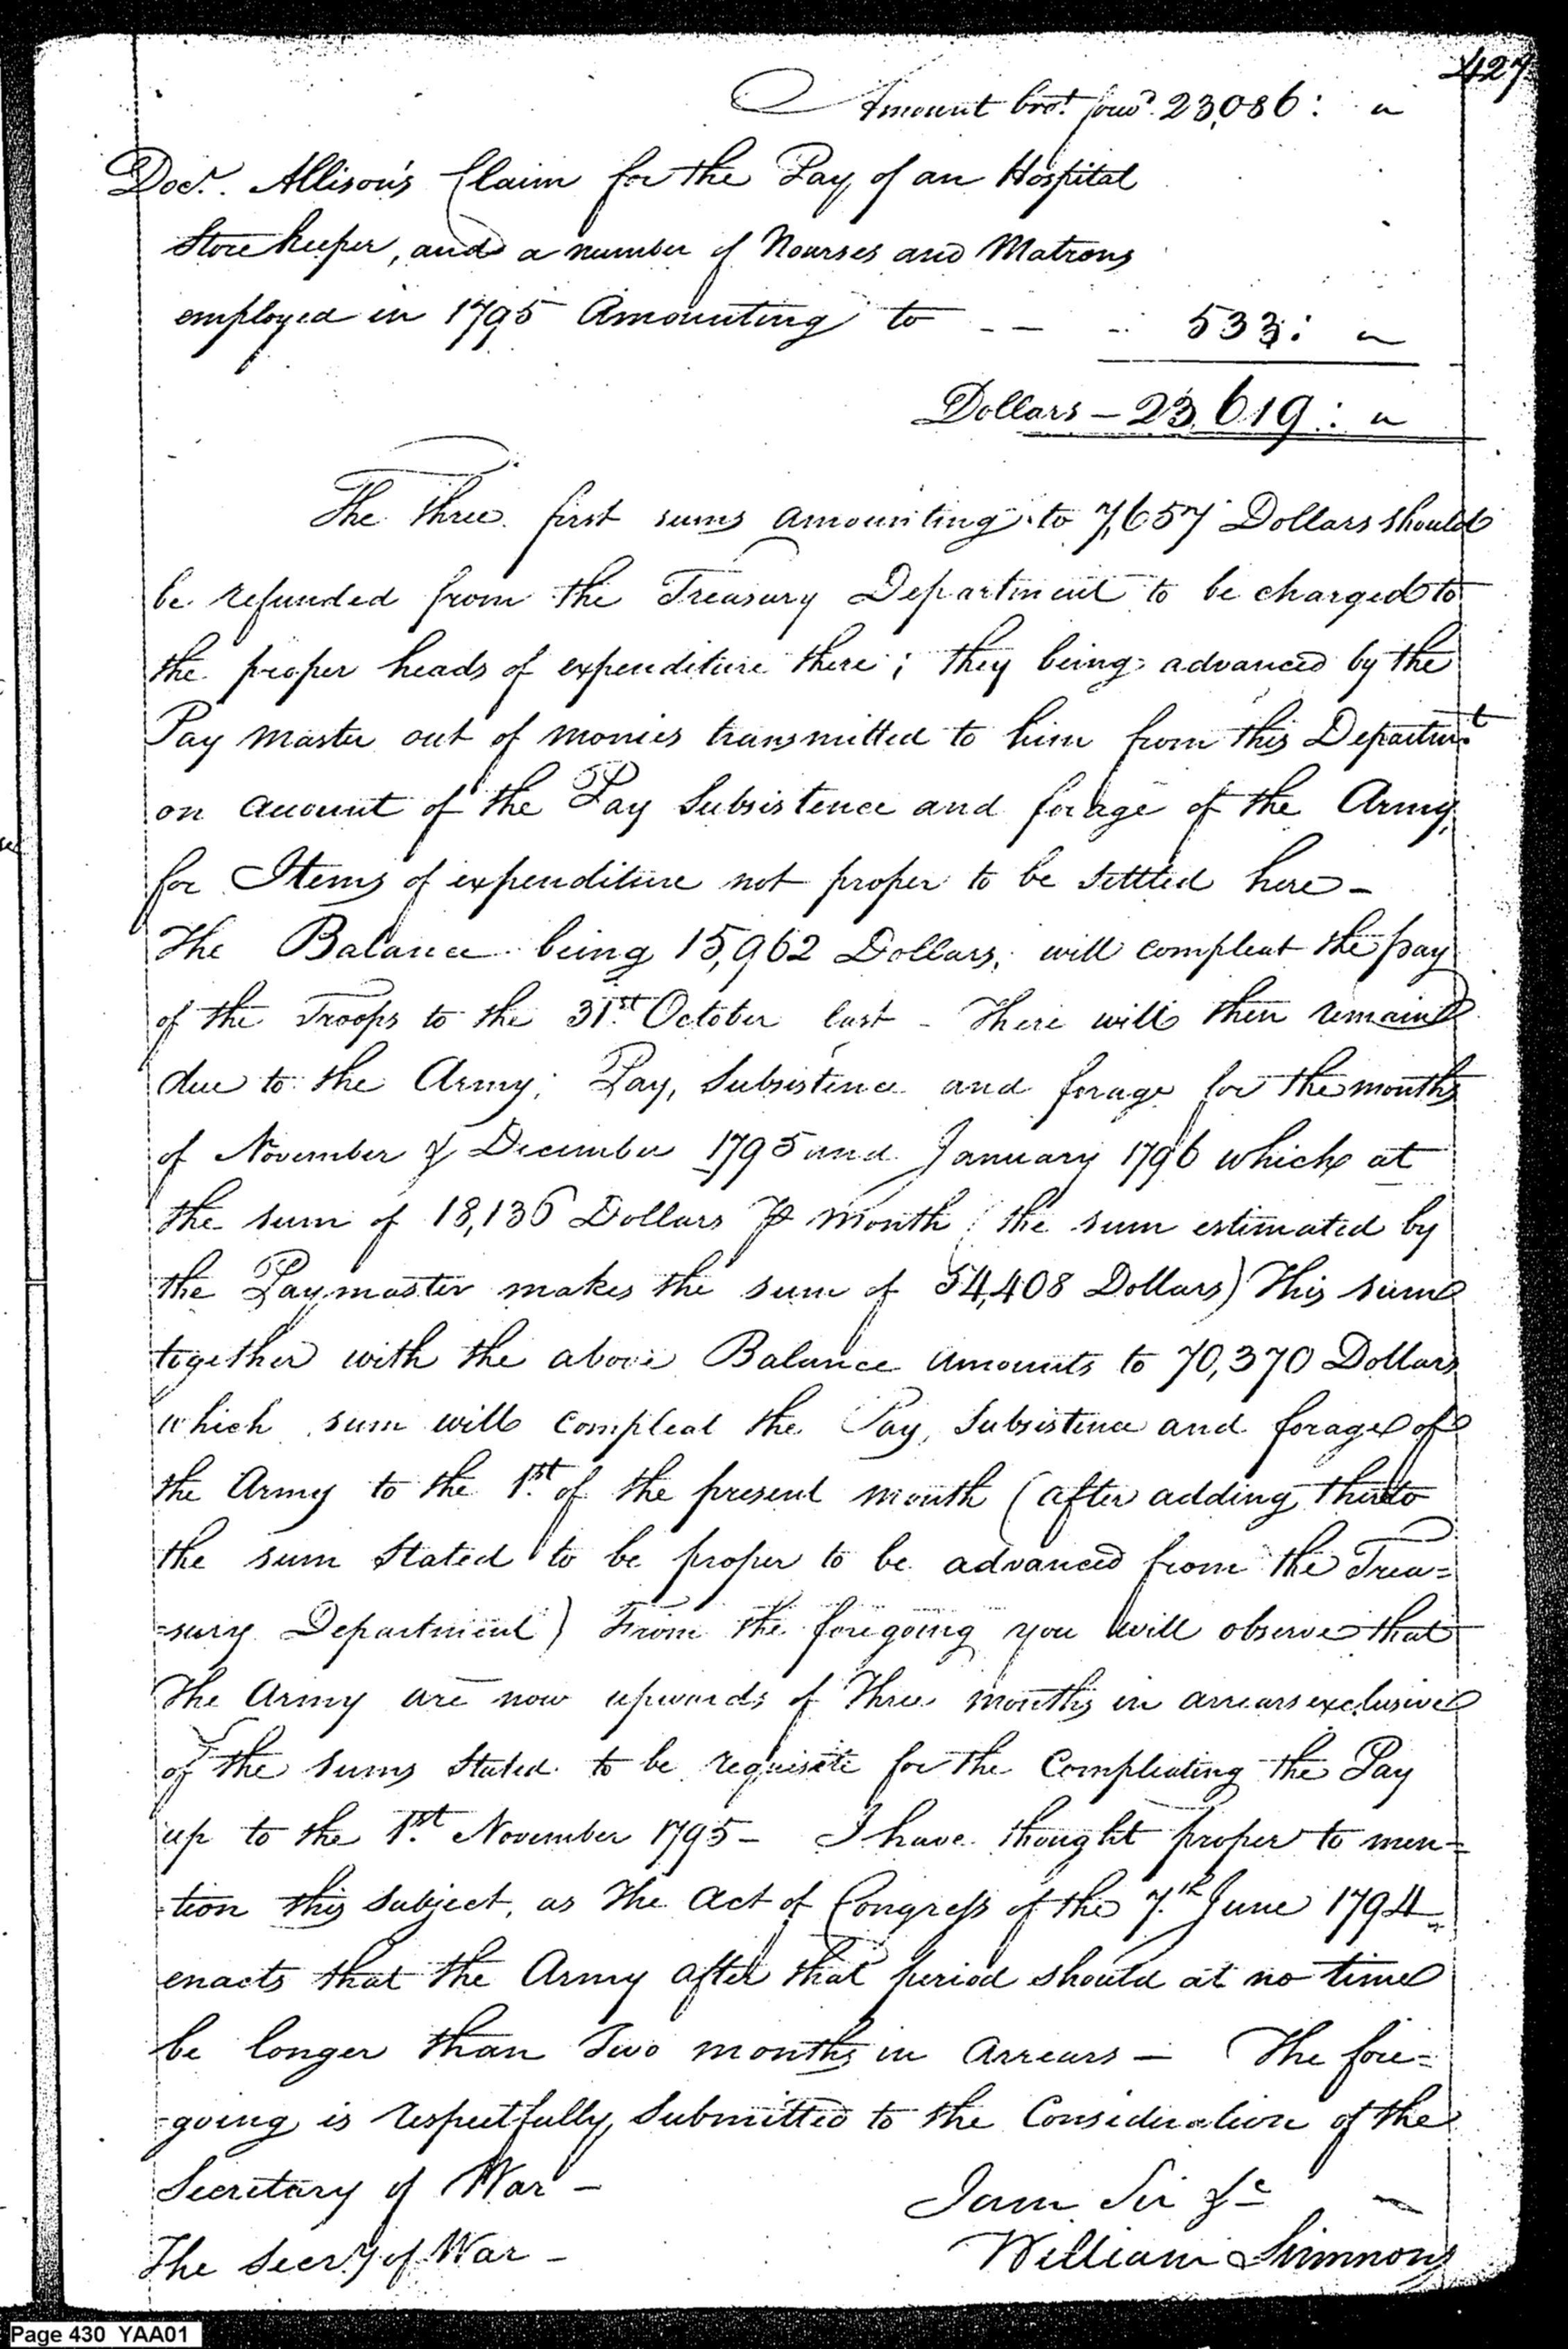 427
Amount brot. forwd. 23,086: "
Docr. Allison's Claim for the Pay of an Hospital
Store keeper, and a number of Nourses and Matrons
employed in 1795 Amounting to - - - 533: "
Dollars - 23,619: "
The three first sums amounting to 7,657 Dollars should
be refunded from the Treasury Department to be charged to
the proper heads of expenditure there; they being advanced by the
Pay master out of monies transmitted to him from this Departmt.
on account of the Pay Subsistence and forage of the Army,
for Items of expenditure not proper to be settled here -
The Balance being 15,962 Dollars, will compleat the pay
of the Troops to the 31st. October last - There will then remain
due to the Army; Pay, Subsistence and forage for the months
of November & December 1795 and January 1796 which at
the sum of 18,136 Dollars ⅌ month (the sum estimated by
the Paymaster makes the sum of 54,408 Dollars) This sum
together with the above Balance amounts to 70,370 Dollars
which sum will compleat the Pay, Subsistence and forage of
the Army to the 1st. of the present month (after adding thereto
the sum stated to be proper to be advanced from the Trea=
=sury Department) From the foregoing you will observe that
The Army are now upwards of Three months in arrears exclusive
of the sums stated to be requisite for the Compleating the Pay
up to the 1st. November 1795 - I have thought proper to men=
-tion this subject, as the Act of Congress of the 7th. June 1794
enacts that the Army after that period should at no time
be longer than Two months in Arrears - The fore=
-going is respectfully submitted to the Consideration of the
Secretary of War -
I am Sir &c
The Secry of War -
William Simmons
Page 430 YAA01